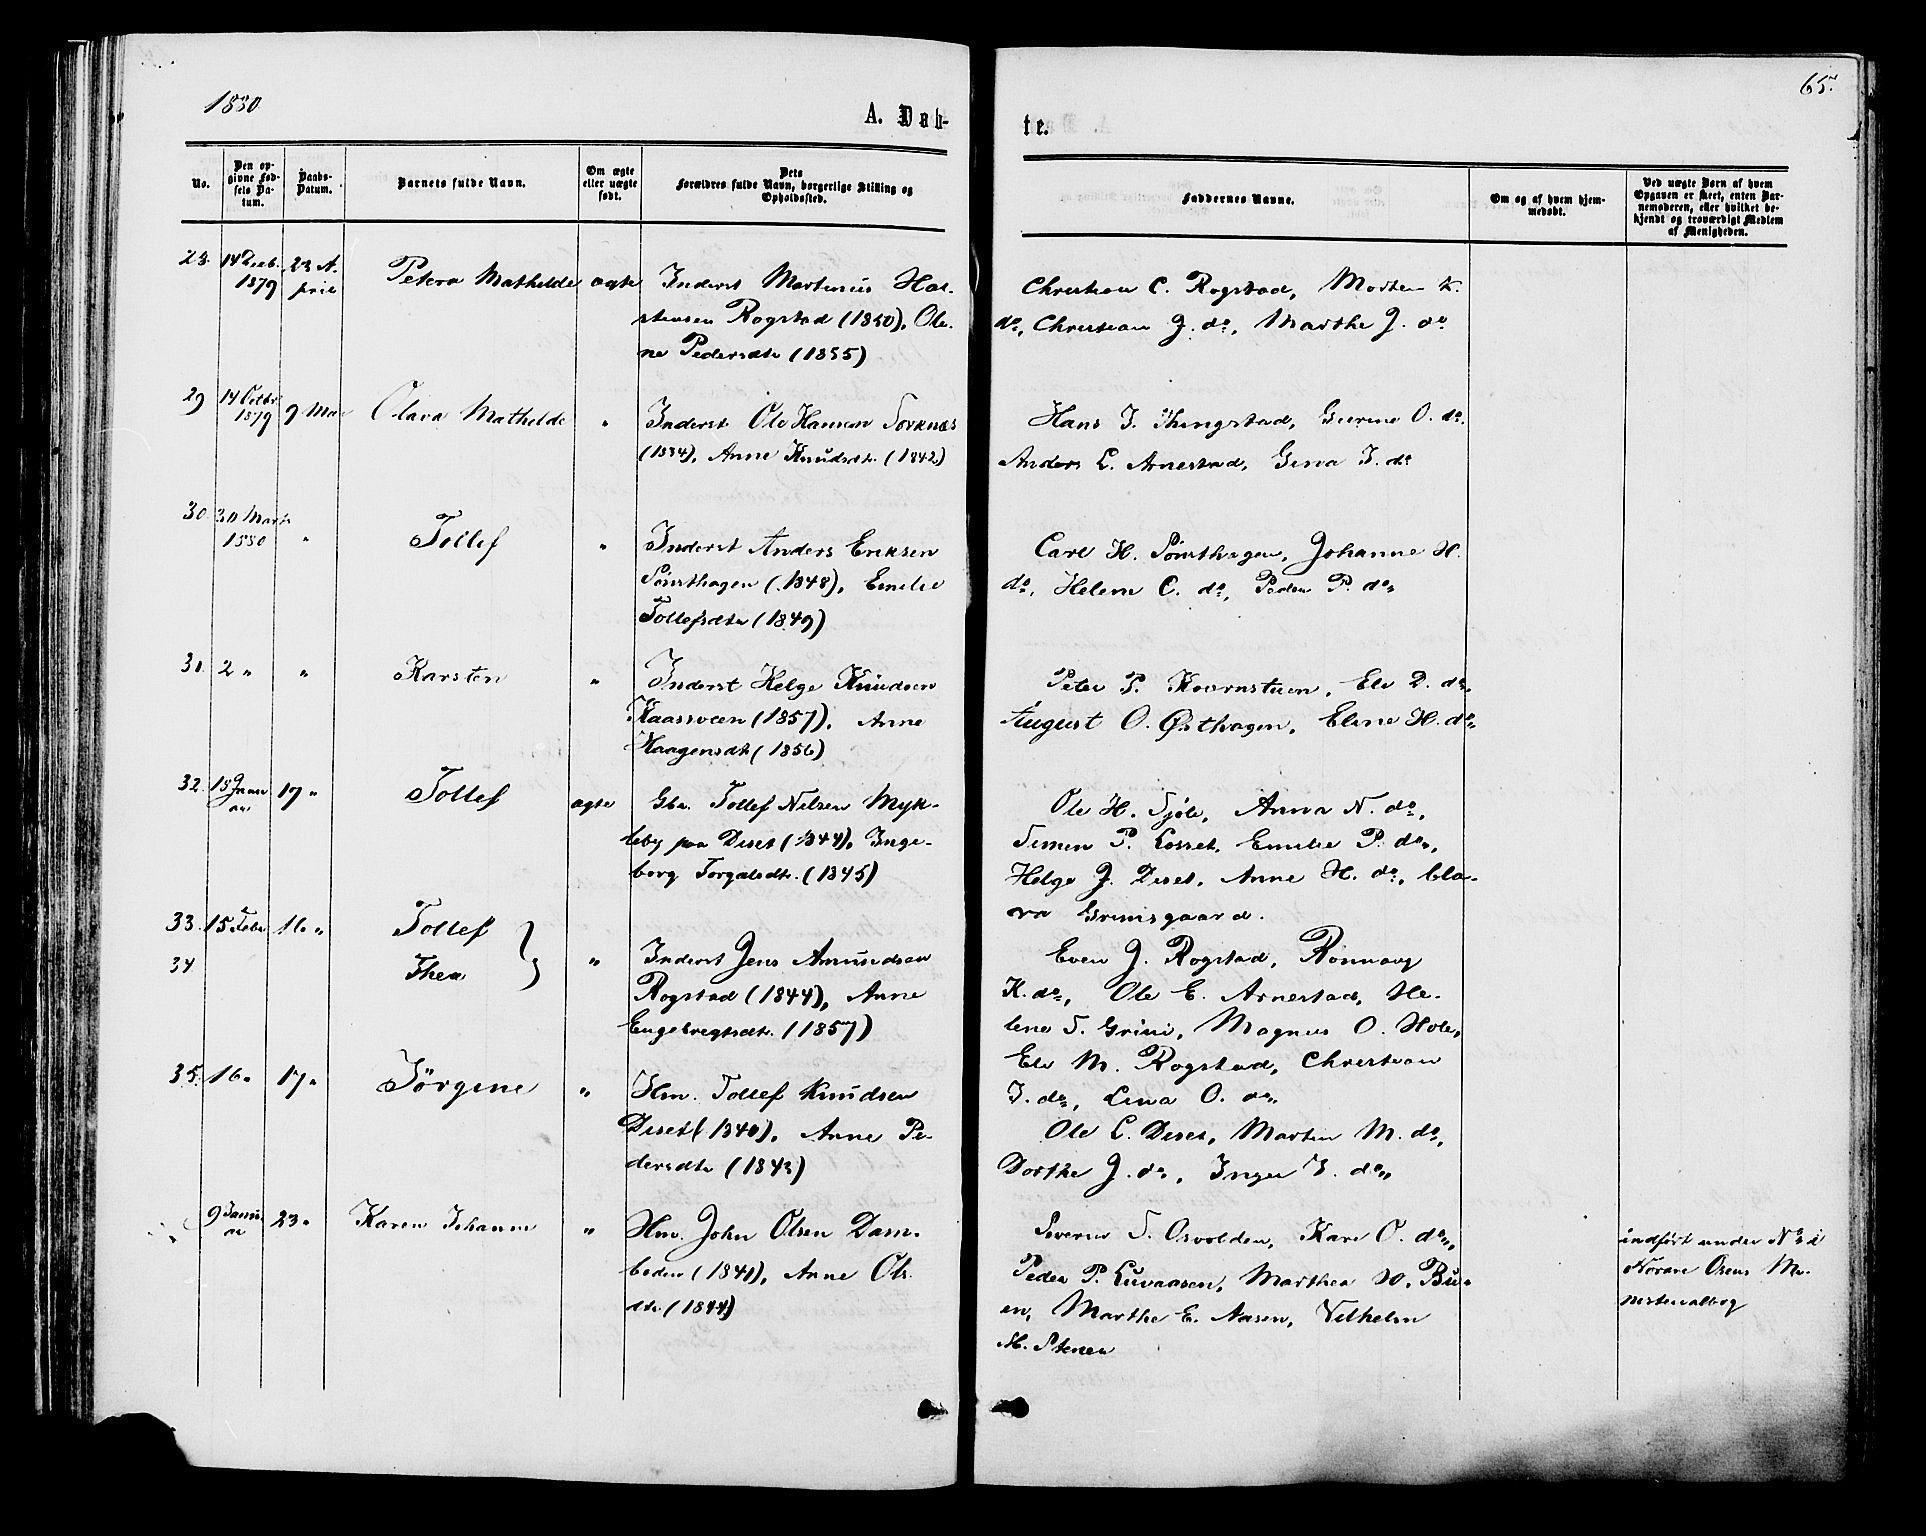 1880
65.
A. Døb-
te.
No.
Den op-
givne Fød-
sels Da-
tum.
Daabs-
Datum.
Barnets fulde Navn.
Om ægte
eller uægte
født.
Dets
Forældres fulde Navn, borgerlige Stilling og
Opholdssted.
Faddernes Navne.
Om og af hvem hjem-
medøbt.
Ved uægte Børn af hvem
Opgaven er skeet, enten Bar-
nemoderen, eller hvilket be-
kjendt og troværdigt Medlem
af Menigheden.
28. 14 Decb. 1879 23 A-
pril
Petera Mathilde ægte
Inderst Martinius Hal-
stensen Rogstad (1850), Ole-
ne Pedersdtr (1855)
Christian C. Rogstad, Morten K.
do, Christian J. do, Marthe J. do
29 14 Octbr. 1879 9 Mai
Olava Mathilde "
Inderst Ole Hansen Sorknæs
(1834), Anne Knudsdtr. (1842)
Hans J. Thingstad, Gurine O. do.
Anders L. Arnestad, Gina J. do
30. 30 Marts 1880 "
Tollef "
Inderst Anders Eriksen
Sørsthagen (1848), Emilie
Tollefsdtr (1849)
Carl H. Sørsthagen, Johanne H.
do, Helene C. do, Peder P. do
31. 2 " "
Karsten "
Inderst Helge Knudsen
Kaasveen (1857), Anne
Haagensdtr (1856)
Peter P. Kværnstuen, Eli D. do,
August O. Østhagen, Eline H. do
32. 18 Janu-
ar 17 "
Tollef ægte
Gbr. Tollef Nilsen Myk-
leby paa Diset (1844), Inge-
borg Torgalsdtr. (1845)
Ole H. Sjøli, Anna N. do,
Simen P. Losset, Emilie P. do,
Helge J. Diset, Anne H. do, Cla-
ra Grimsgaard.
33. 15 Febr 16 "
Tollef
34
Thea "
Inderst Jens Amundsen
Rogstad (1844), Anne
Engebregtsdtr. (1857)
Even J. Rogstad, Rønnaug
K. do, Ole E. Arnestad, He-
lene S. Grini, Magnus O. Hole,
Eli M. Rogstad, Christian
J. do, Lina O. do
35. 16 " 17 "
Jørgine "
Hm. Tollef Knudsen
Diset (1840), Anne Pe-
dersdtr (1843)
Ole L. Diset, Martin M. do,
Dorthe J. do, Inger J. do
9 Janu-
ar 23 "
Karen Johanne "
Hm. John Olsen Dam-
beden (1841), Anne Ols-
dtr (1844)
Severin S. Osvolden, Kari O. do,
Peder P. Luvaasen, Marthea H. Bu-
en, Marthe E. Aasen, Vilhelm
H. Stenen
indført under No 2 i
Nordre Osens Mi-
nisterialbog